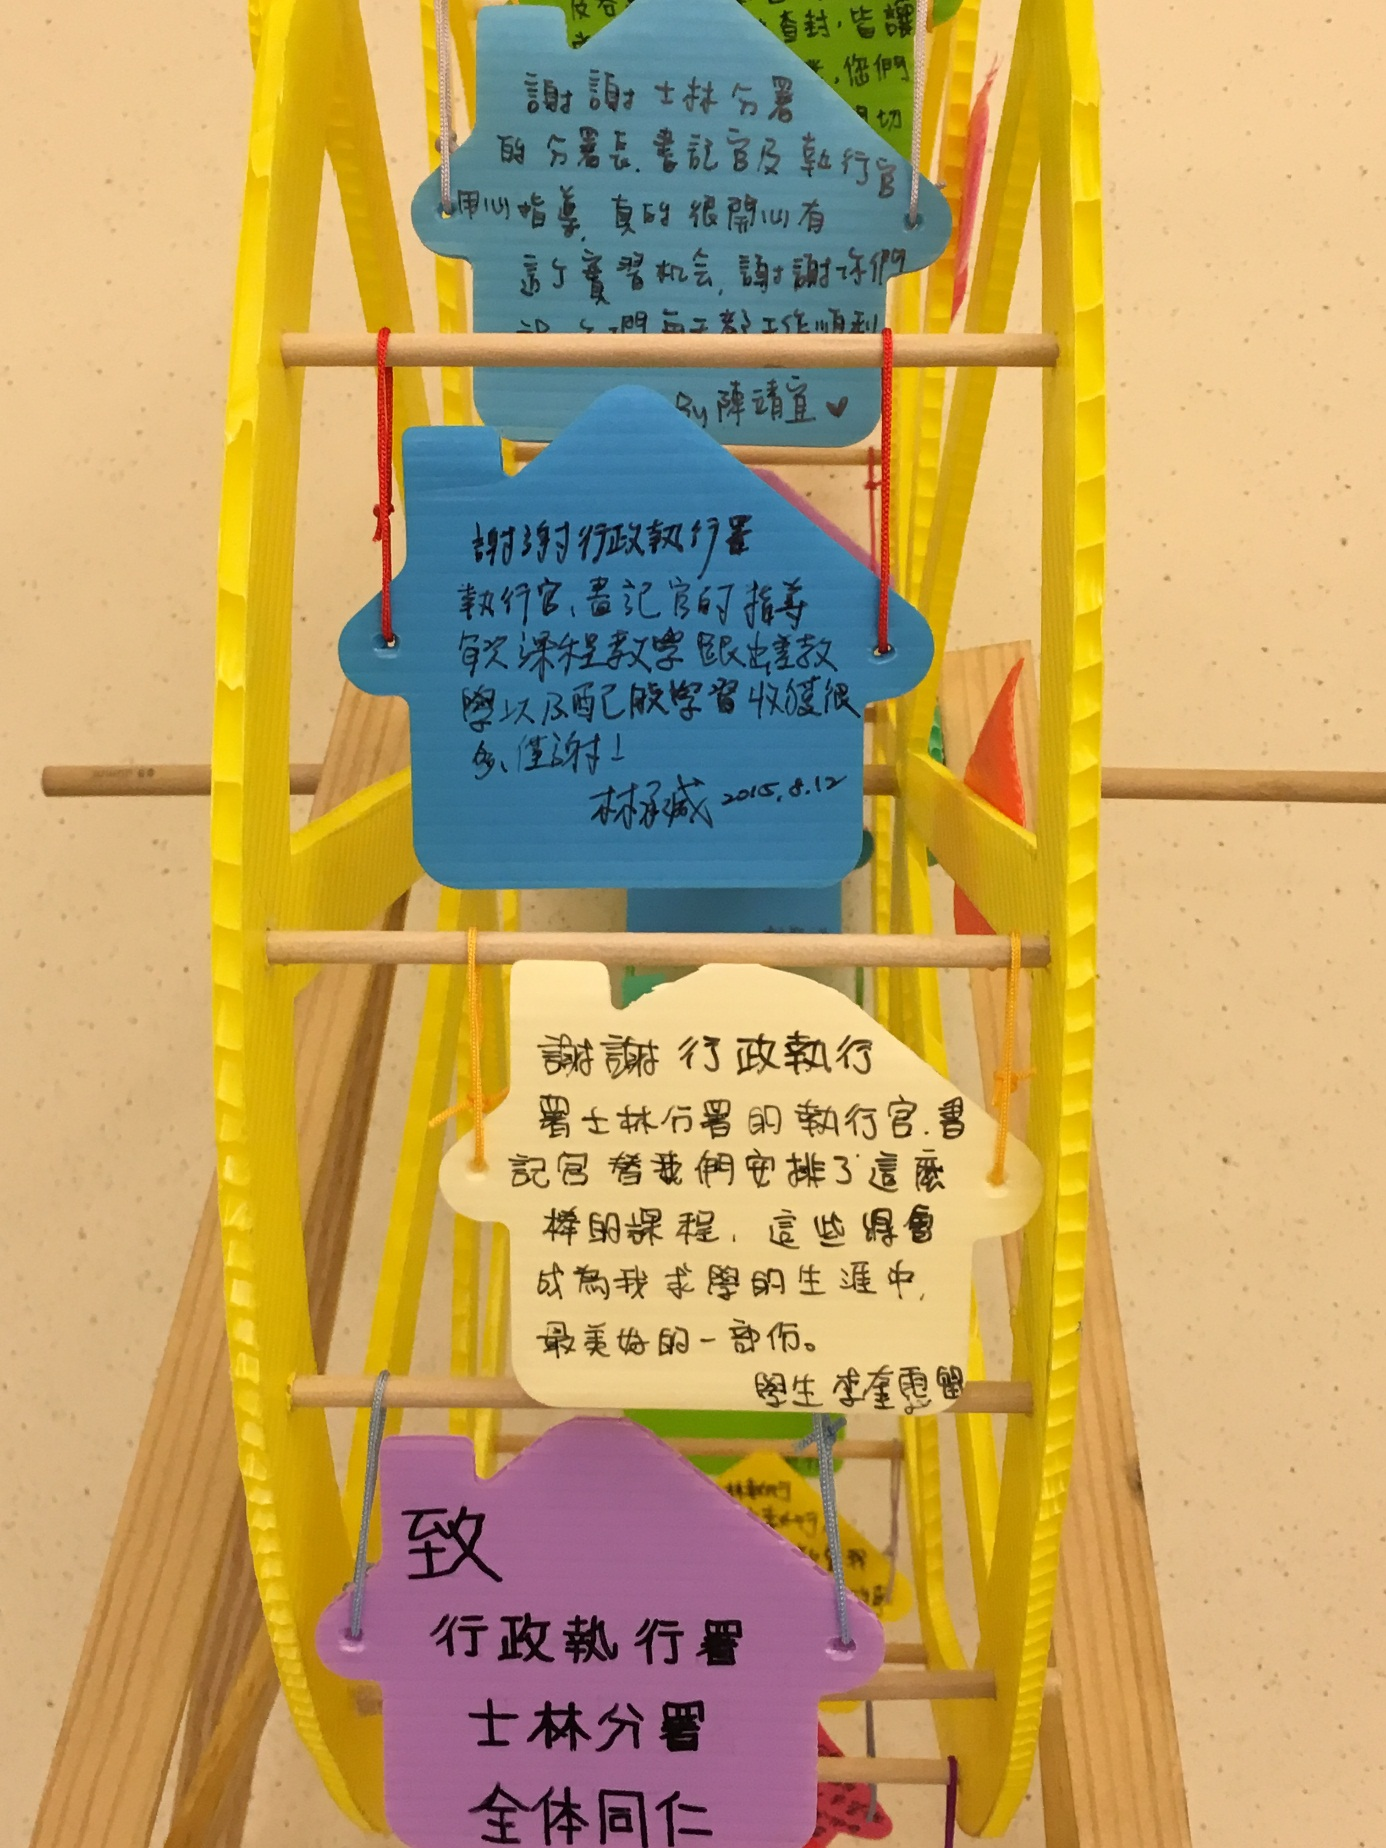 查封，皆讓
您們
切
謝謝士林分署
的分署長、書記官及執行官
用心指導，真的很開心有
這个實習机会，謝謝你們
每天都工作順利
By 陳靖宜♥
謝謝行政執行署
執行官、書記官的指導
每次課程教學跟出差教
學以及配股学習收獲很
多、僅謝！
林承威 2015.8.12
謝謝行政執行
署士林分署的執行官、書
記官替我們安排了這麼
棒的課程，這些將會
成為我求學的生涯中，
最美好的一部份。
學生 李奎霆 留
致
行政執行署
士林分署
全体同仁